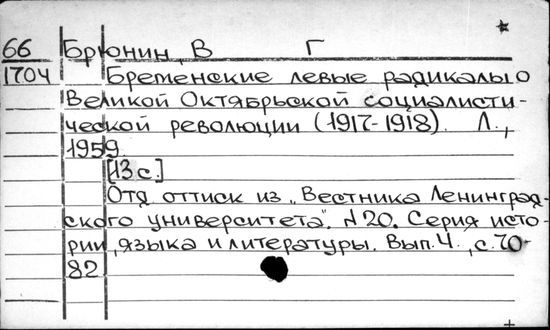 66 Брюнин, В Г
1704 Бременские левые радикалы о
Великой Октябрьской социалисти-
ческой революции (1917-1918). Л.,
1959.
[13 с.]
Отд. оттиск из „Вестника Ленинград-
ского университета". N 20. Серия исто-
рии, языка и литературы. Вып. 4., с. 70-
82